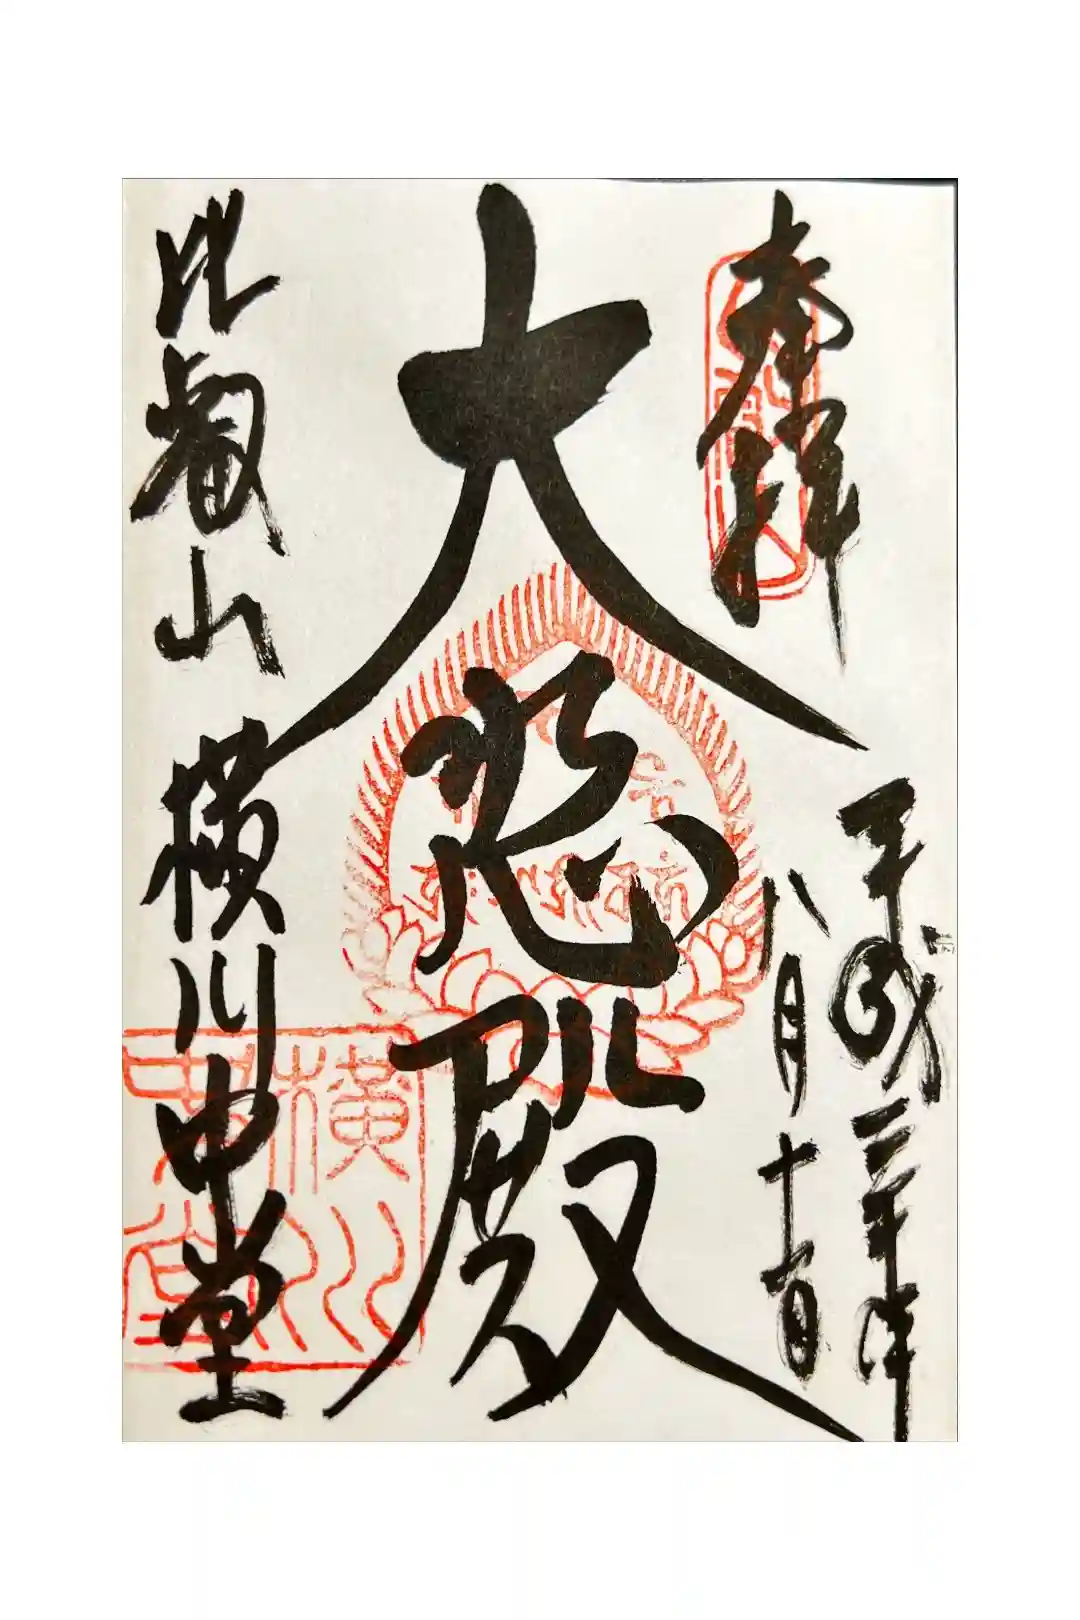 奉拝
平成三十年
八月十一日
大悲殿
比叡山 横川中堂
横川中堂